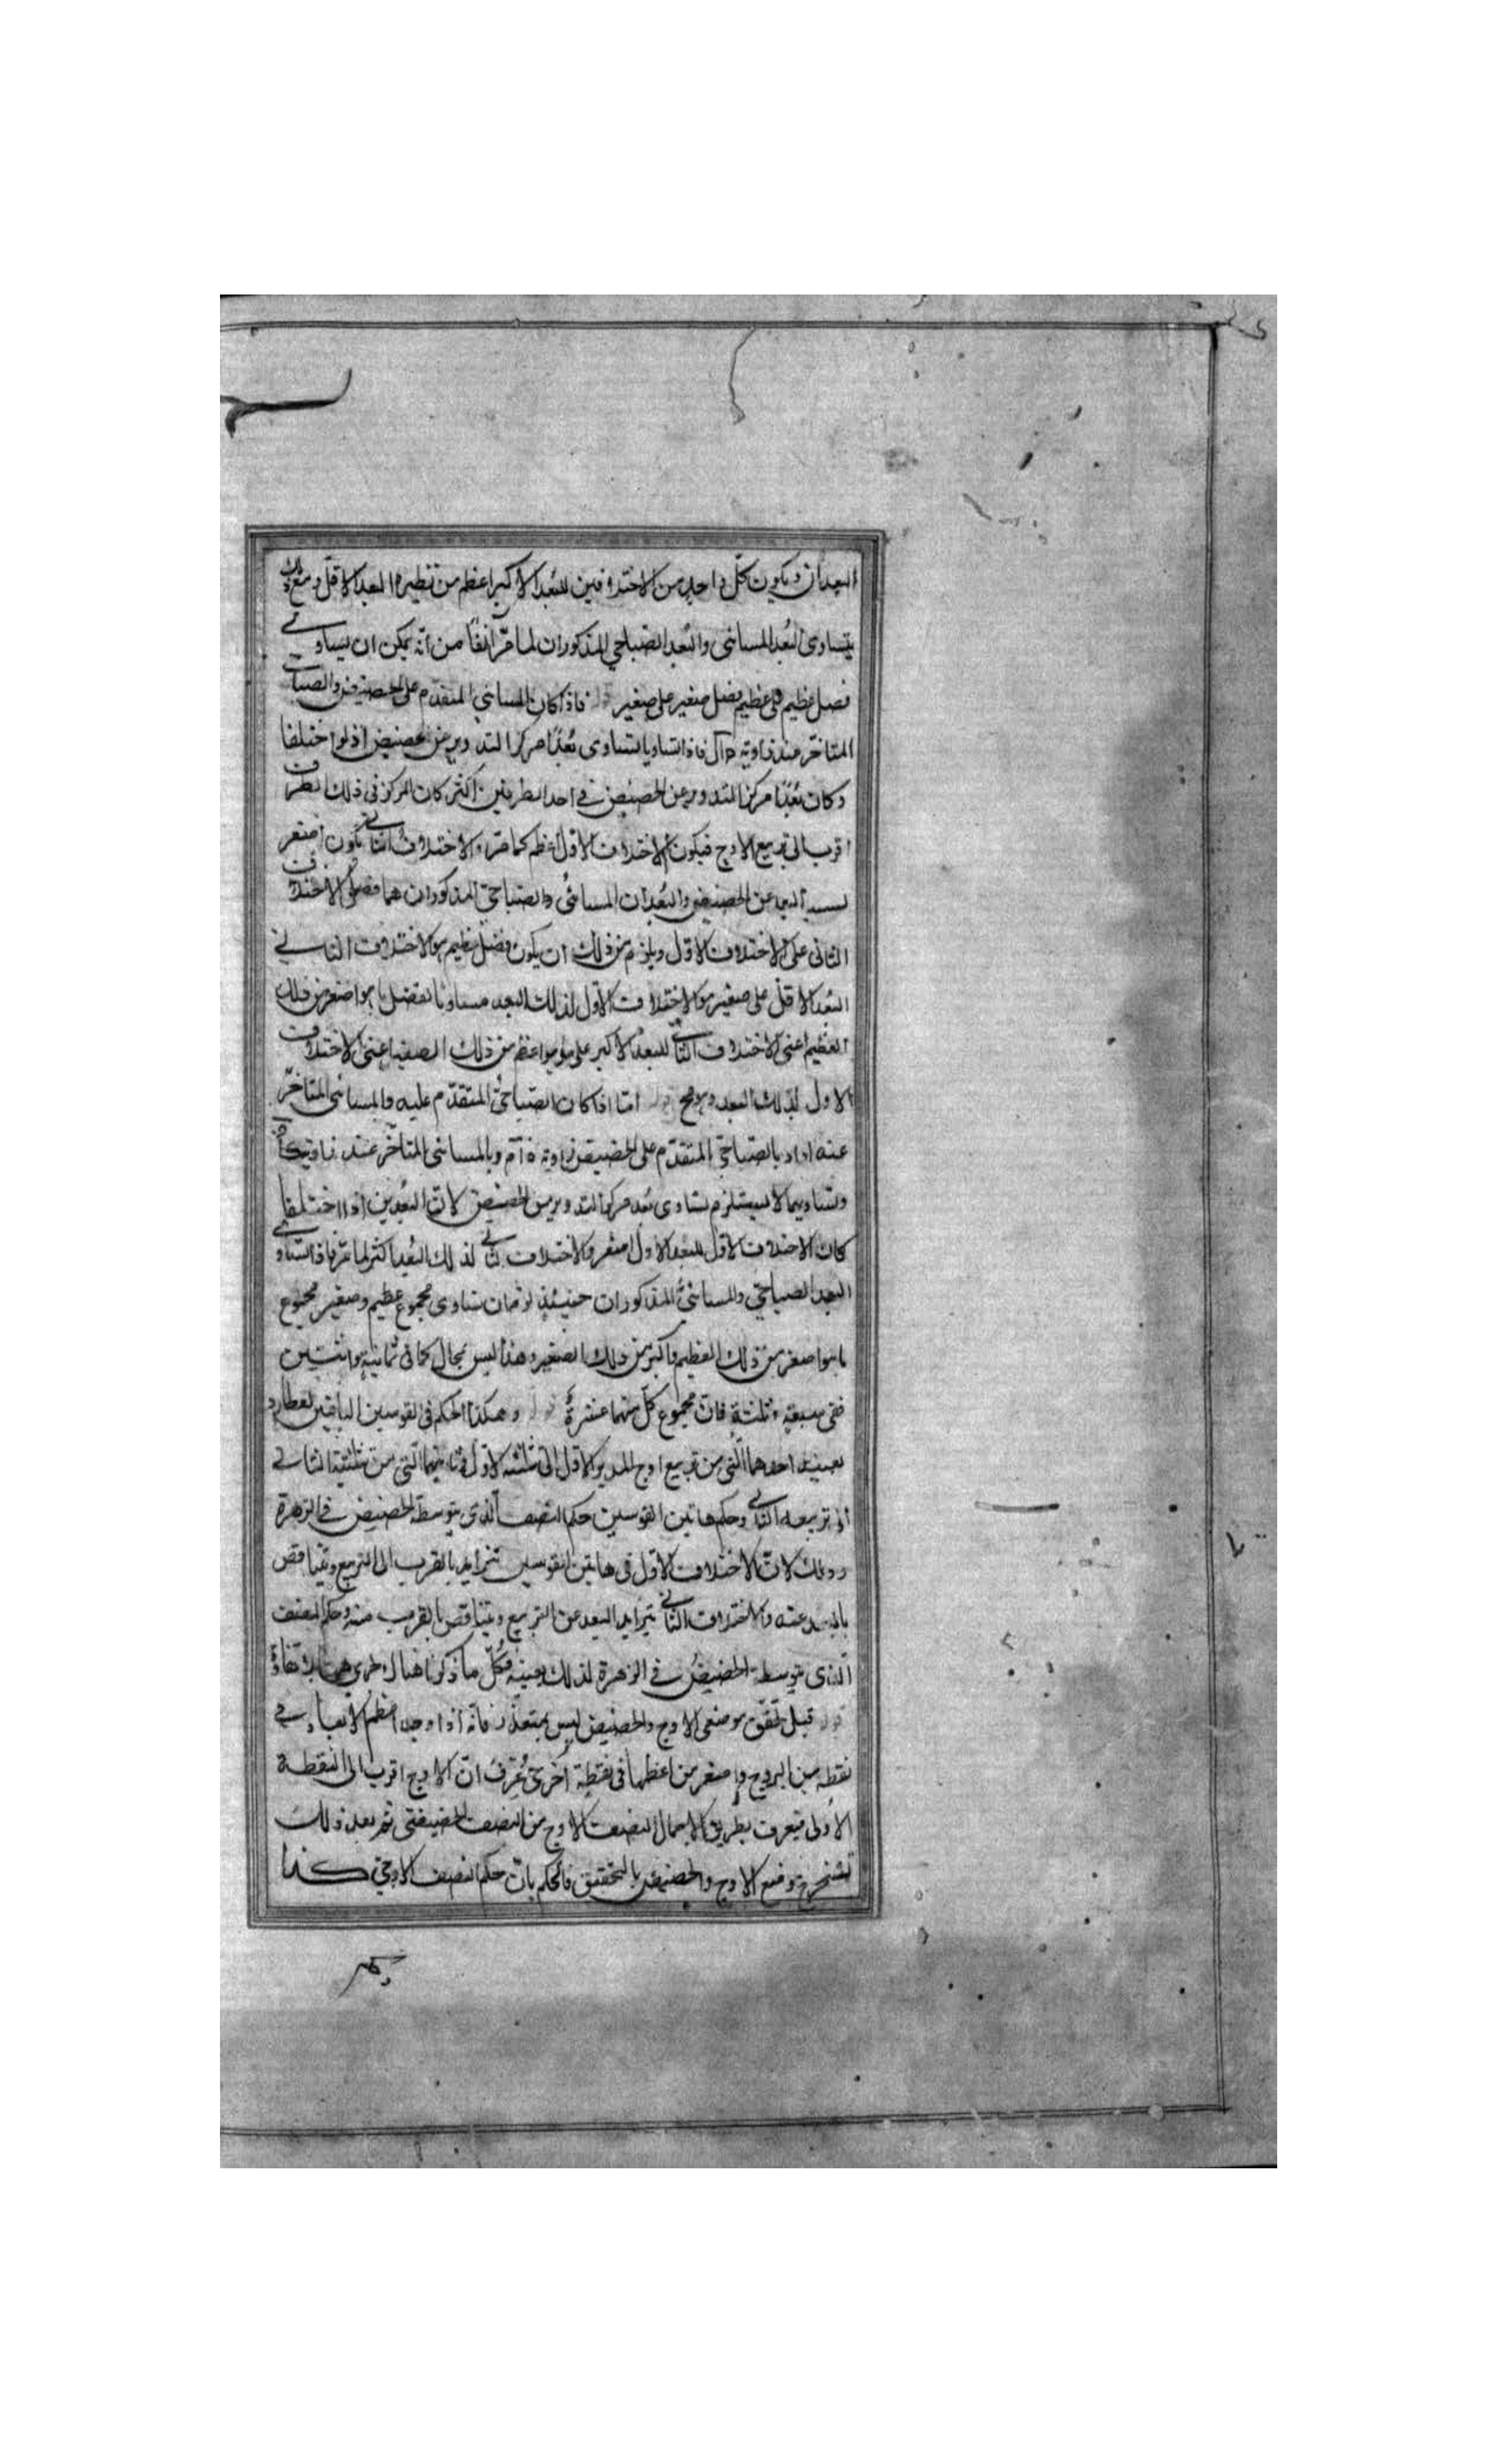 البعدان ويكون كل واحد من الاختلافين للبعد الاكبر اعظم من نظيره البعد الاقل ومع ذلك
يتساوى البُعد المسائى والبُعد الصباحي المذكوران لما مرّ آنفًا من انّه يمكن ان يساوى
فضل عظيم على عظيم فضل صغير على صغير فاذا كان المسائي المتقدّم على الحضيض والصباحى
المتاخّر عند زاوية فاذا تساويا تساوى بُعدا مركز التدوير عن الحضيض اذ لو اختلفا
وكان بُعد مركز التدوير عن الحضيض في احد الطرفين اكثر كان المركز فى ذلك الطرف
اقرب الى تربيع الاوج فيكون الاختلاف الاول اعظم كما مرّ والاختلاف الثانى يكون اصغر
لسبب البعد عن الحضيض والبُعدان المسائىُ والصباحىّ المذكوران هما فضلى الاختلاف
الثانى على الاختلاف الاول ويلزم من ذلك ان يكون فضل عظيم هو الاختلاف الثانى
البُعد الاقل على صغير هو الاختلاف الاول لذلك البعد مساويا لفضل ما هو اصغر من ذلك
العظيم اعنى الاختلاف الثانى للبعد الاكبر على ما هو اعظم من ذلك الصغير اعنى الاختلاف
الاول لذلك البعد وهو مح امّا اذا كان الصباحىّ المتقدّم عليه والمسائى المتاخّر
عنه اراد بالصباحى المتقدّم على الحضيض زاوية وبالمسائى المتاخّر عنه زاوية
وتساويهما لا يستلزم تساوى بُعد مركز التدوير من الحضيض لانّ البُعدين اذا اختلفا
كان الاختلاف الاول للبُعد الاول اصغر والاختلاف الثانى لذلك البُعد اكثر لما مرّ فاذا تساوى
البعد الصباحىّ والمسائىّ المذكوران حينئذ لزمان تساوى مجموع عظيم وصغير مجموع
ما هو اصغر من ذلك العظيم واكبر من ذلك الصغير وهذا ليس بمحال كما فى ثمانية واثنين
فى سبعة وثلثة فان مجموع كلّ منهما عشرة وهكذا الحكم فى القوسين الباقيتين لعطارد
بعينه احدهما الّتى من تربيع اوج المدير الاول الى مثلثه الاول وثانيهما الّتى من مثلثيه الثانى
الى تربيعه الثانى وحكم هاتين القوسين حكم النصف الذى يتوسطه الحضيض فى الزهرة
وذلك لانّ الاختلاف الاول فى هاتين القوسين تتزايد بالقرب الى التربيع ويتناقص
بالبعد عنه والاختلاف الثانى يتزايد البعد عن التربيع ويتناقص بالقرب منه وحكم النصف
الّذى يتوسطه الحضيضُ فى الزهرة لذلك بعينه فكلّ ما ذكرنا هناك جرى ههنا بلا تفاوت
قبل تحقّق موضعى الاوج والحضيض ليس بمتعذّر فانّه اذا وجد اعظم الابعاد فى
نقطة من البروج واصغر من اعظمها فى نقطة اخرى عُرف انّ الاوج اقرب الى النقطة
الاولى فيعرف بطريق الاجمال النصف الاوجى من النصف الحضيضى ثم بعد ذلك
تستخرج موضع الاوج والحضيض بالتحقيق فالحكم بانّ حكم النصف الاوجىّ كذا